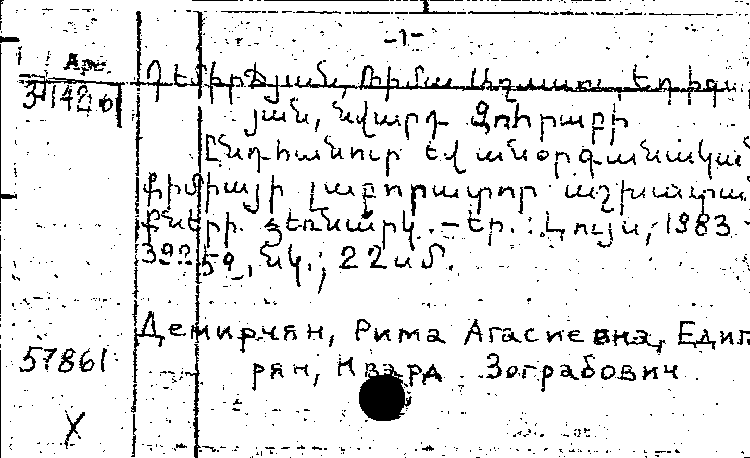 -1-
Арм.
Դեմիրճյան, Ռիմա Աղասու, Եդիգա
34142
յան, Նվարդ Զոհրաբի
Ընդհանուր եվ անօրգանական
քիմիայի լաբորատոր աշխատա
քների ձեռնարկ.-Եր.: Լույս, 1983
392 , նկ.; 22 սմ.
Демирчян, Рима Агасиевна, Едиг
57861
рян, Нвард Зограбович
X